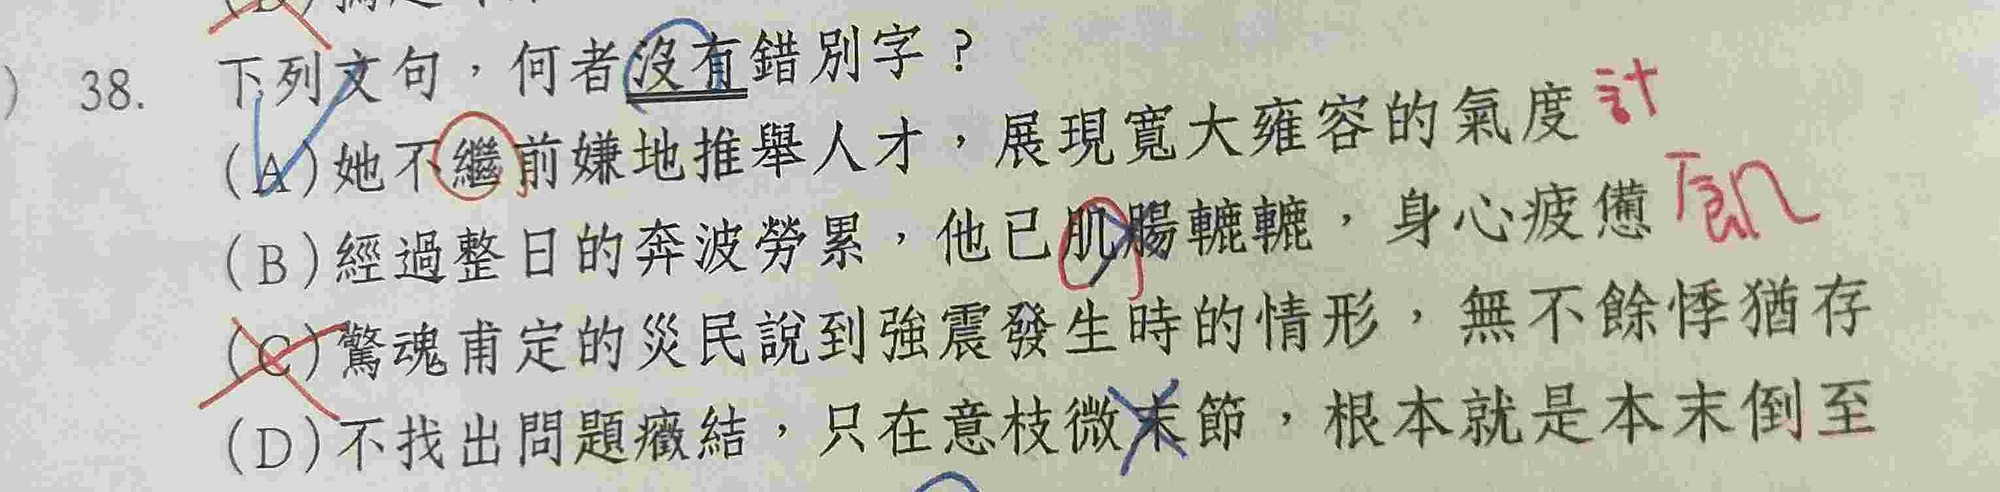 38. 下列文句，何者沒有錯別字？
(A)她不繼前嫌地推舉人才，展現寬大雍容的氣度 計
(B)經過整日的奔波勞累，他已肌腸轆轆，身心疲憊 飢
(C)驚魂甫定的災民說到強震發生時的情形，無不餘悸猶存
(D)不找出問題癥結，只在意枝微末節，根本就是本末倒至